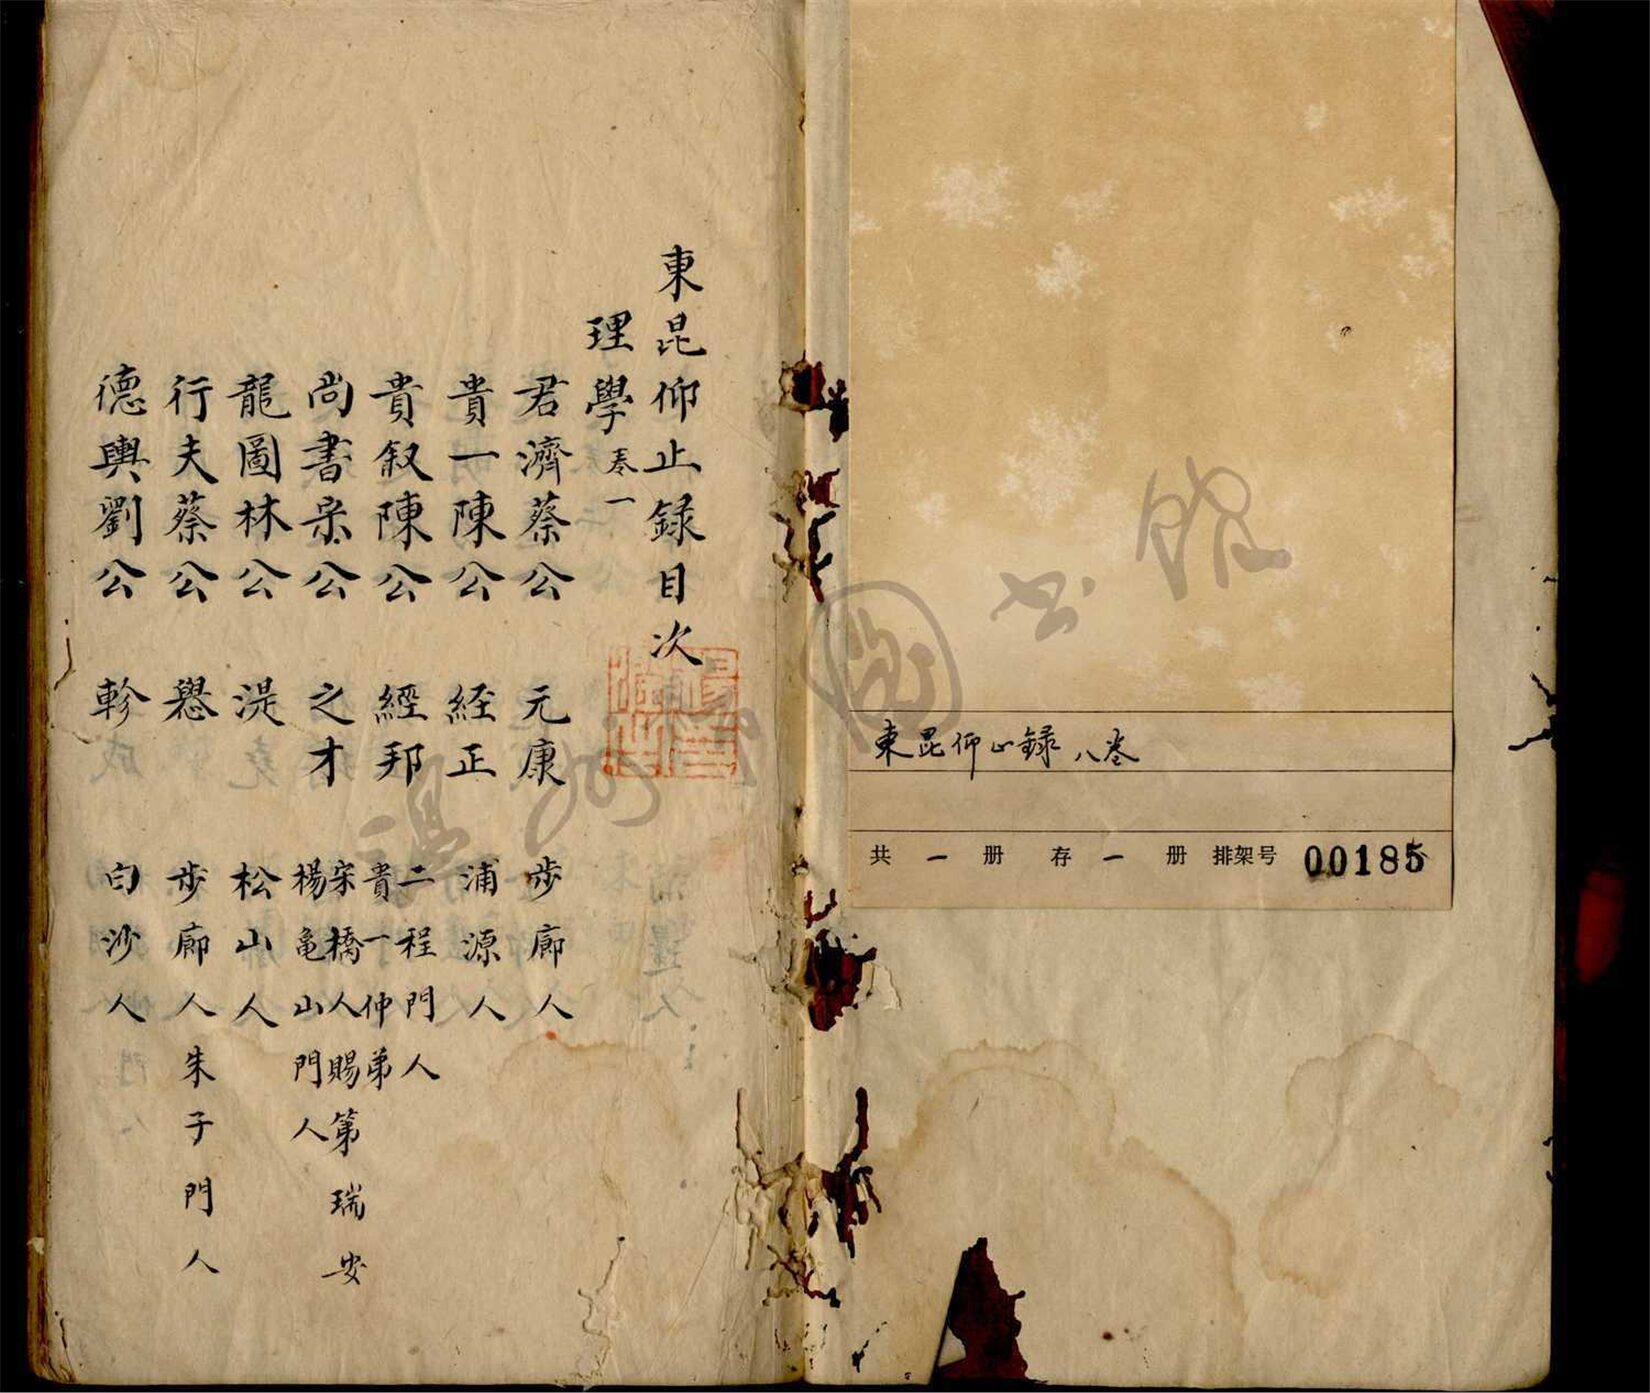 東昆仰止録 八卷
共 一 册 存 一 册 排架号 00185
東昆仰止録目次
理學 卷一
君濟蔡公 元康 步廊人
貴一陳公 経正 浦源人
貴叙陳公 經邦 二程門人 貴一仲弟
尚書宋公 之才 宋橋人賜第瑞安 楊亀山門人
龍圖林公 湜 松山人
行夫蔡公 㦛 步廊人朱子門人
德輿劉公 軫 白沙人
温州市圖書館